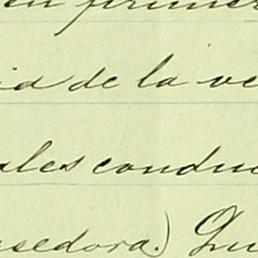 en primer
ia de la ve
ales conduc
sedora.) Qu